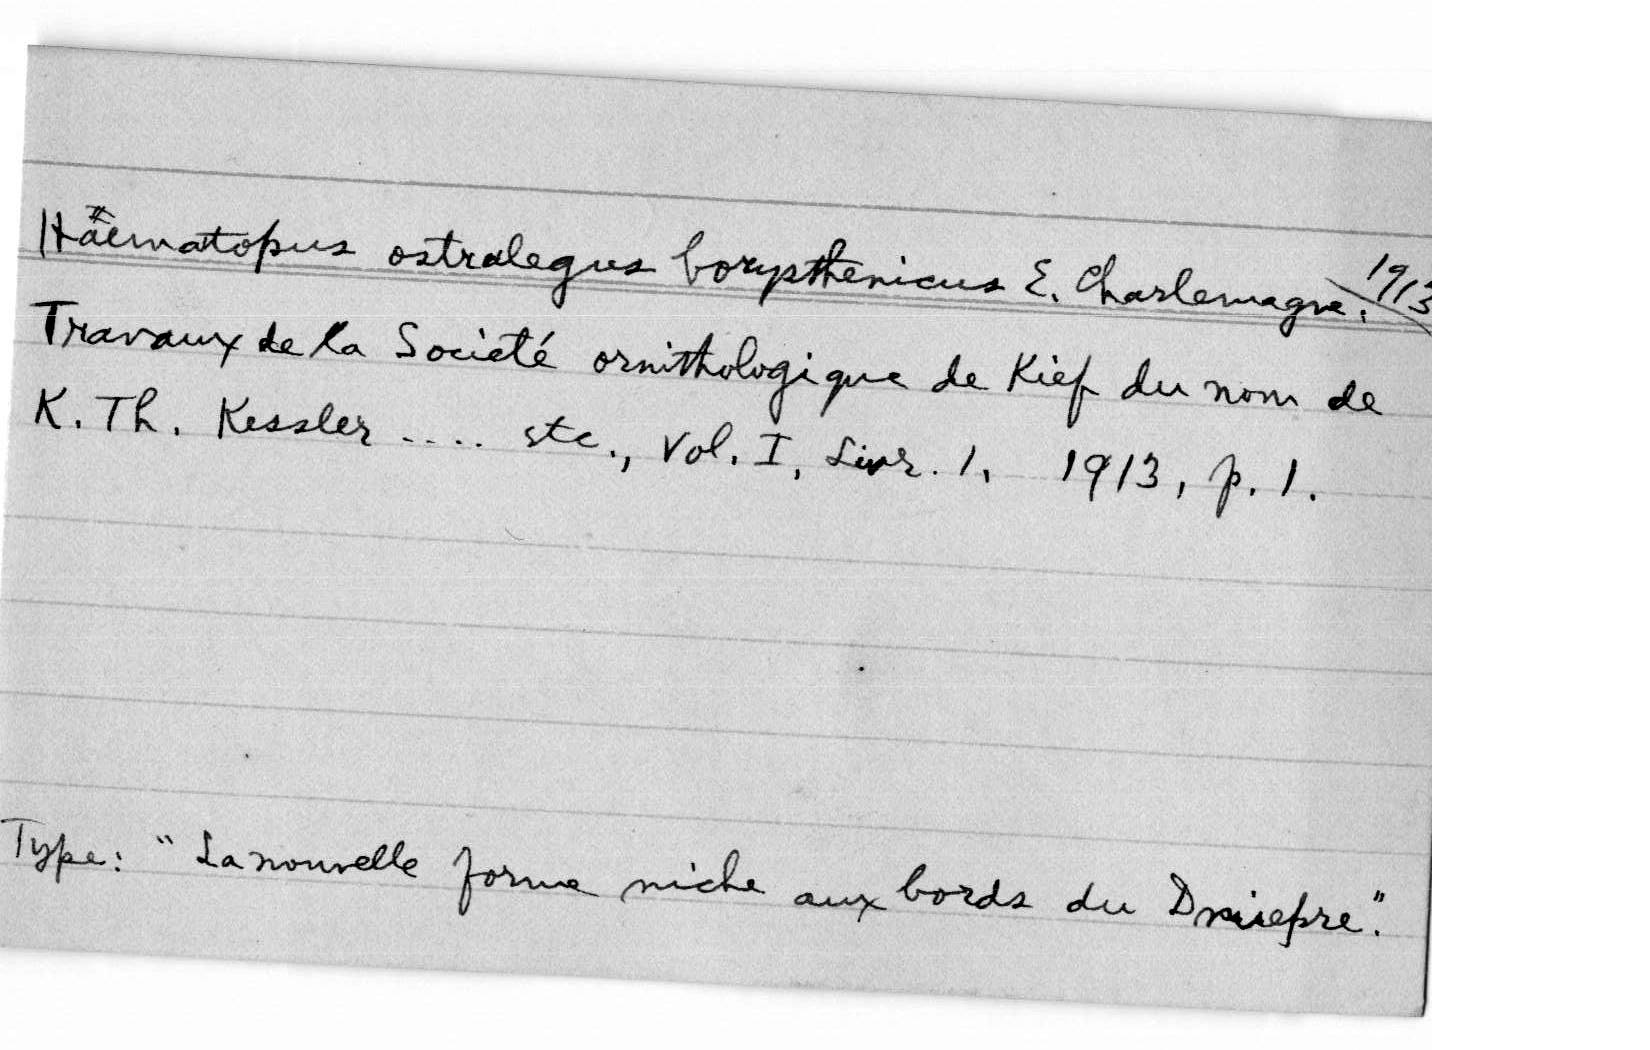 Haematopus ostralegus borysthenicus E. Charlemagne. 1913
Travaux de la Société ornithologique de Kief du nom de
K. Th. Kessler .... etc., Vol. I, Livr. 1, 1913, p. 1.
Type: "La nouvelle forme niche aux bords du Dniepre."